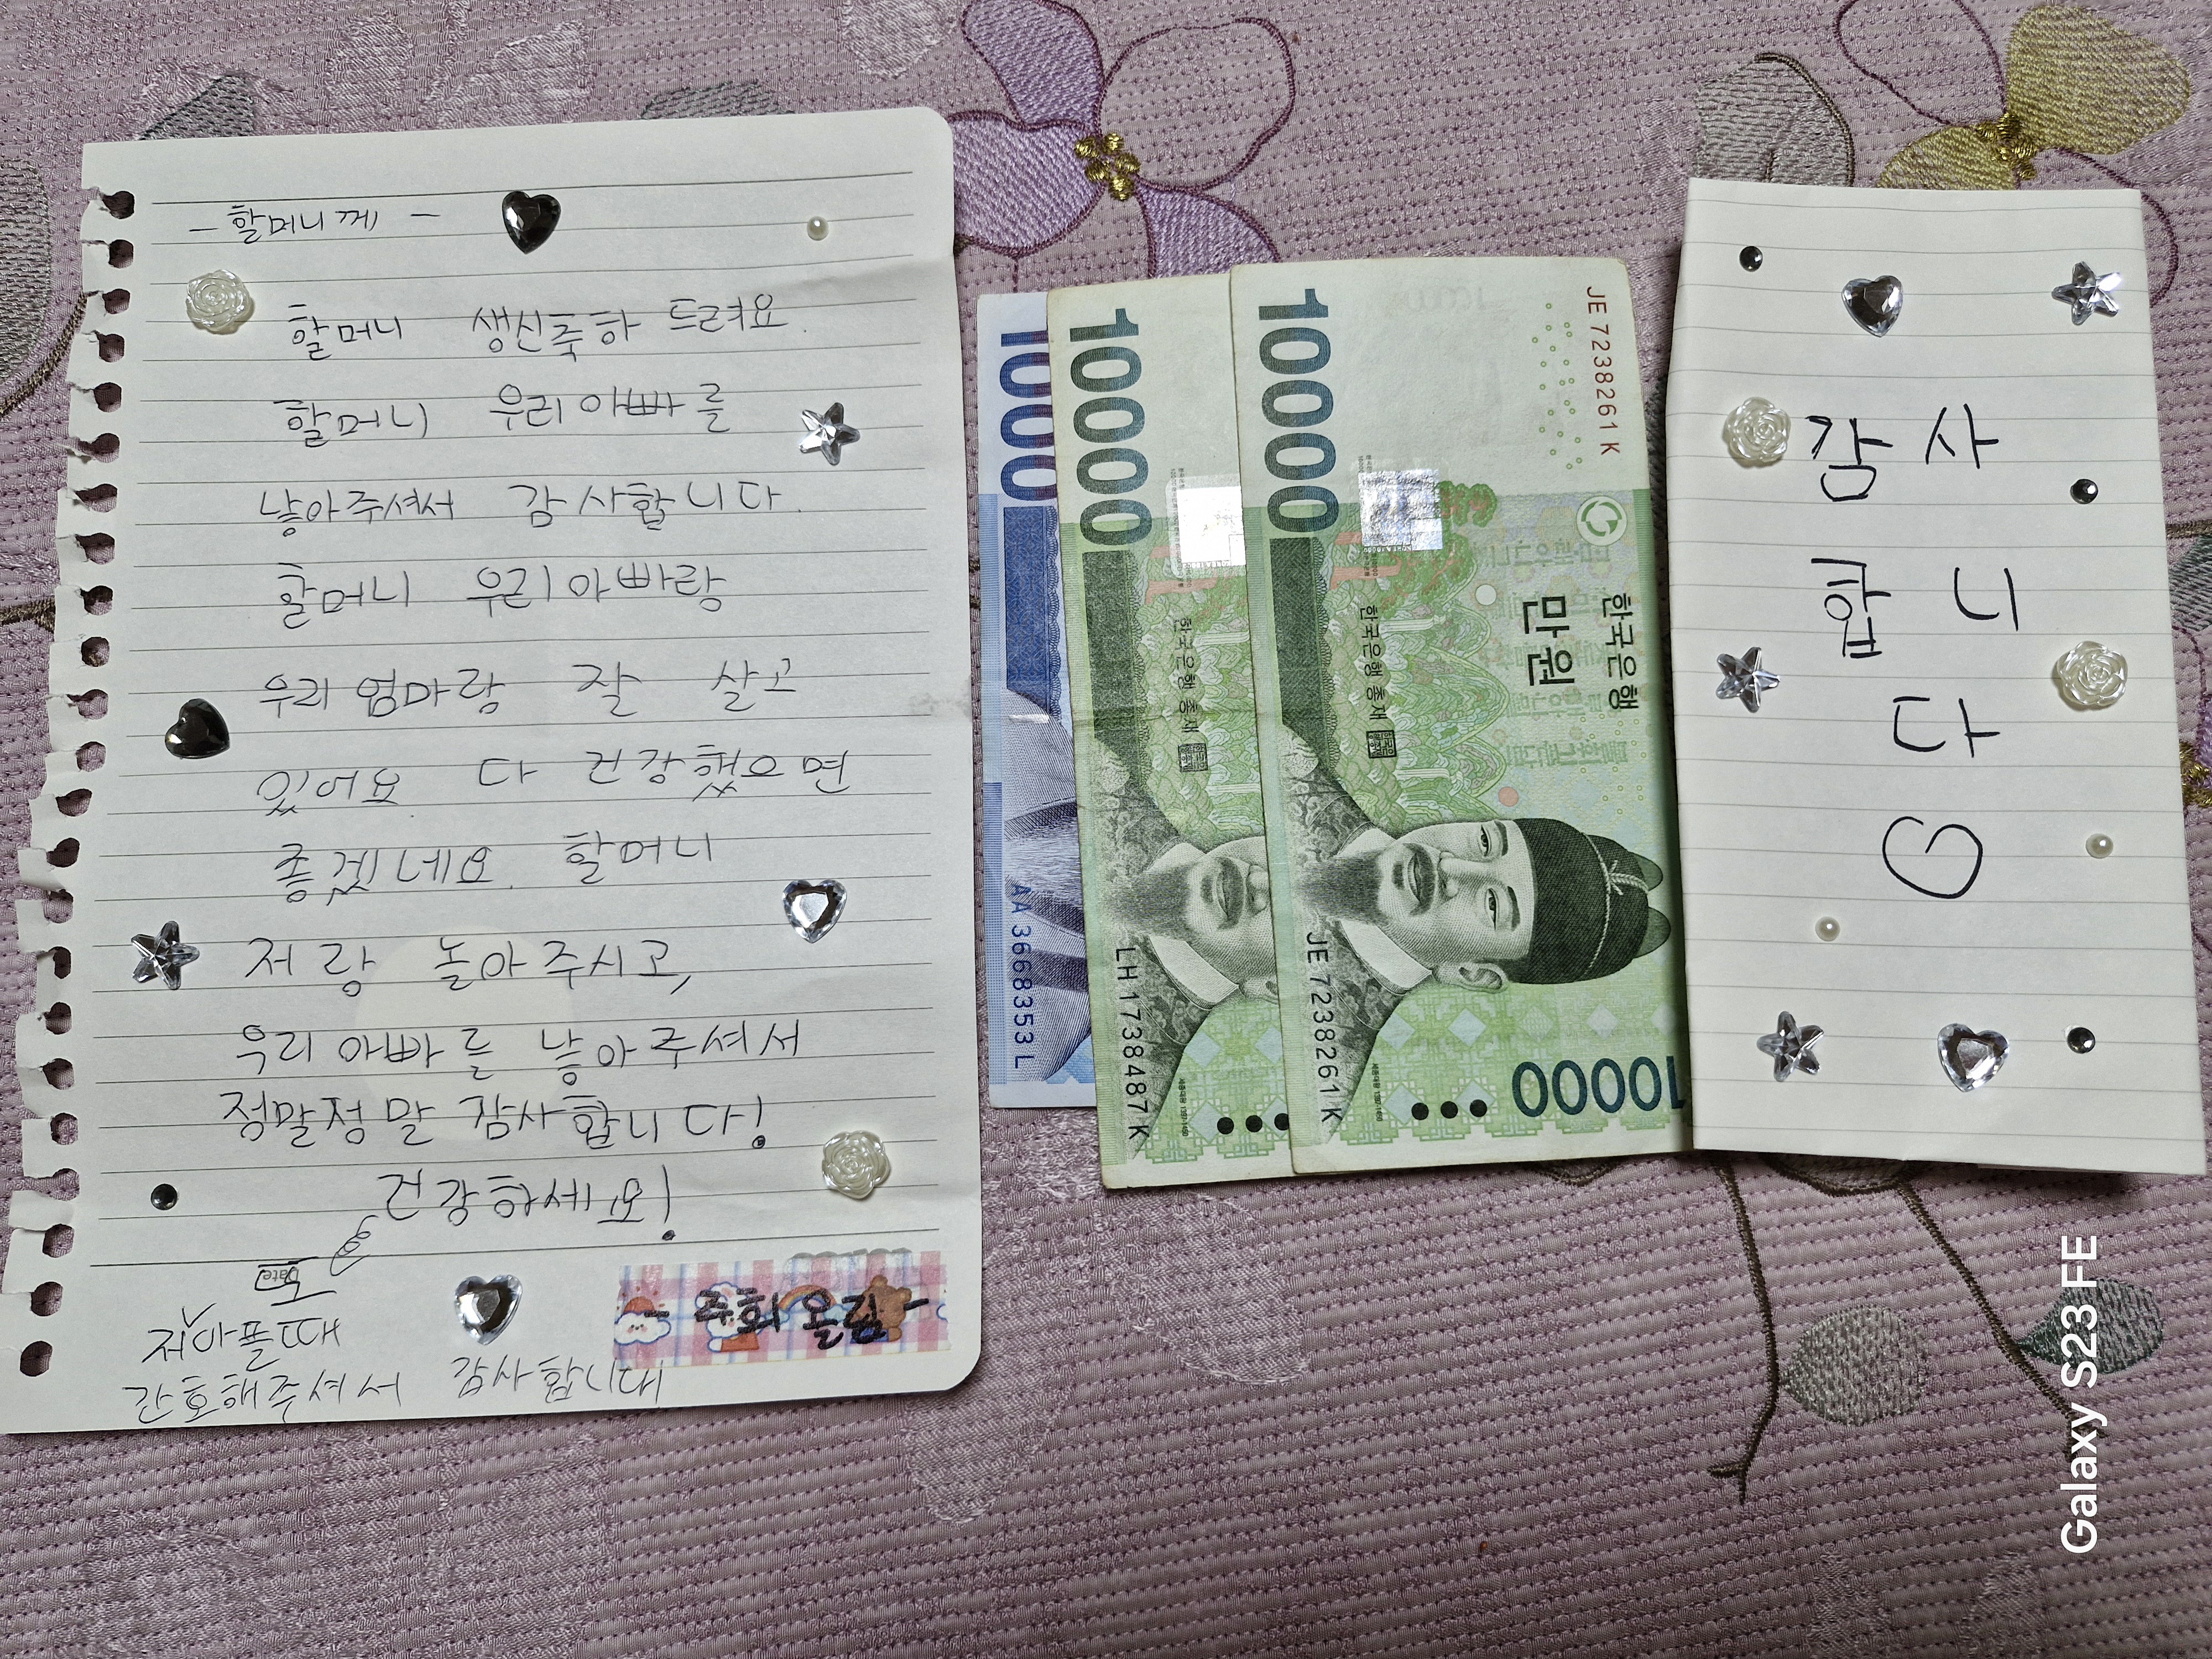 - 할머니께 -
할머니 생신축하 드려요.
할머니 우리아빠를
낳아주셔서 감사합니다.
할머니 우리아빠랑
우리엄마랑 잘 살고
있어요. 다 건강했으면
좋겠네요. 할머니
저랑 놀아주시고,
우리 아빠를 낳아주셔서
정말정말 감사합니다!
건강하세요!
Date
또
저아플때
간호해주셔서 감사합니다
- 주희 올림 -
1000
AA3668353L
10000
한국은행 총재
LH1738487K
10000
JE7238261K
한국은행
만원
한국은행 총재
JE7238261K
10000
감사
합니
다♡
Galaxy S23 FE